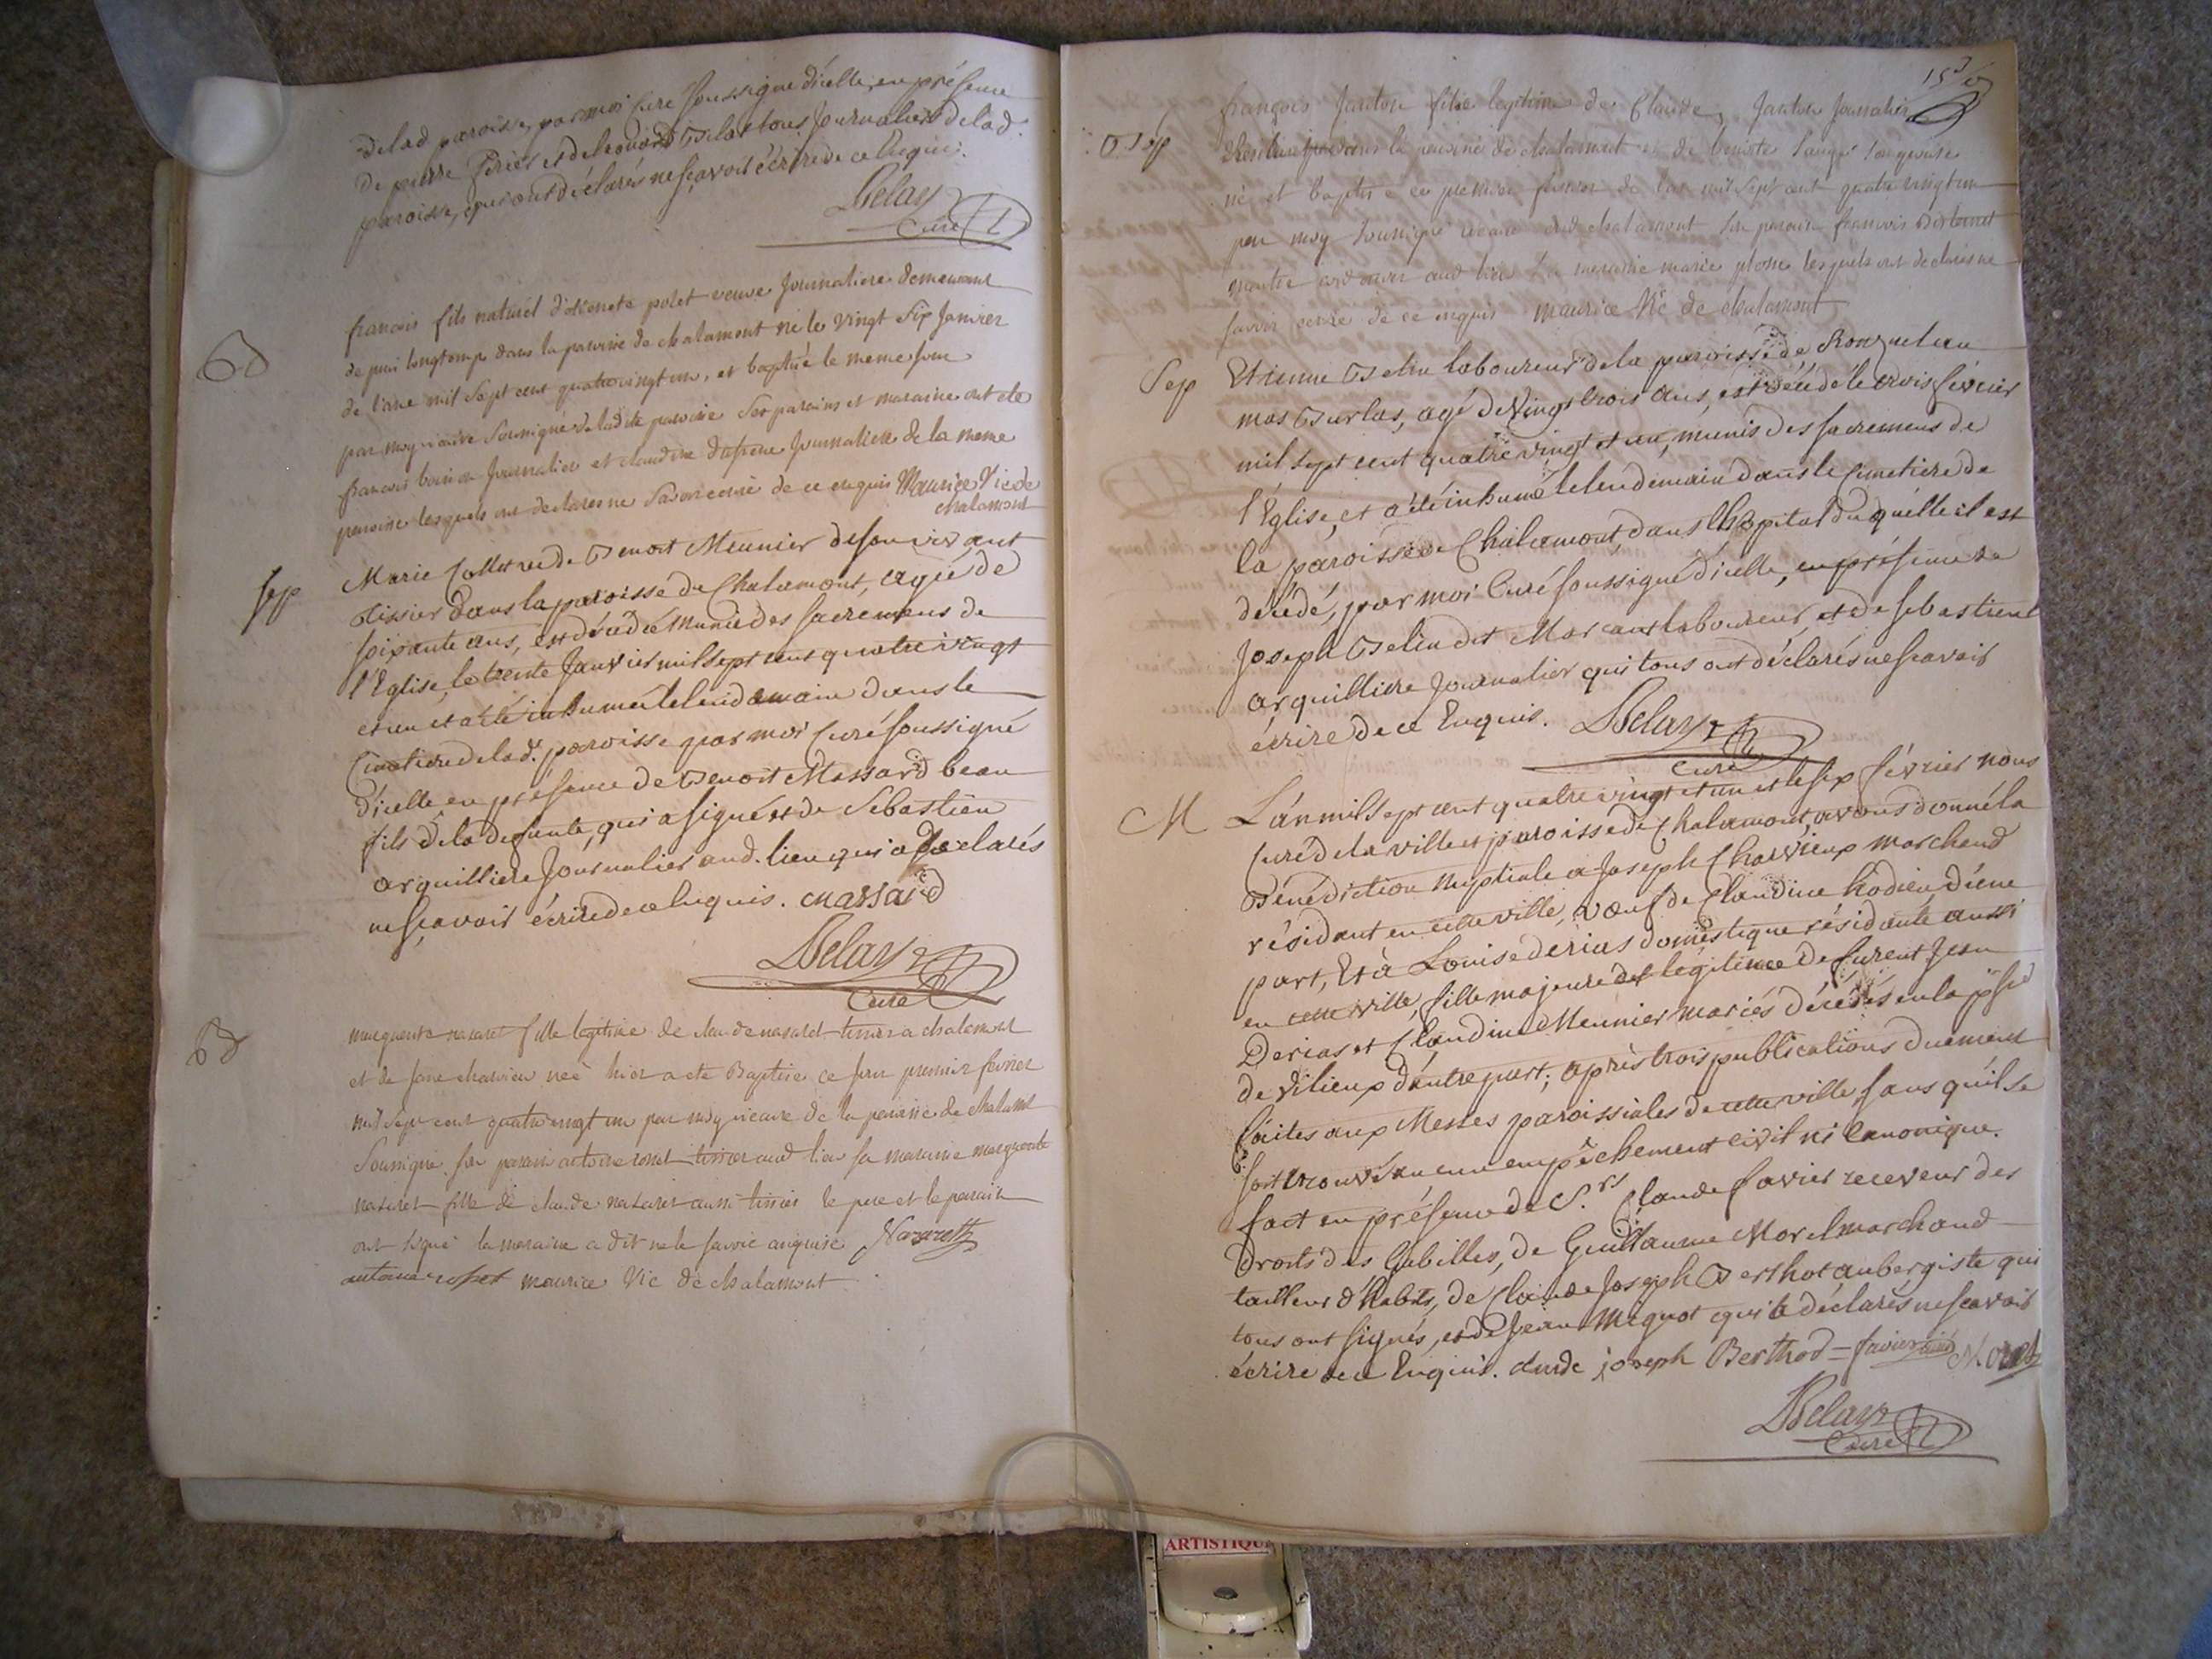 de lad paroisse, par moi Curé soussigné d'icelle, en présence
de pierre
paroisse, qui ont déclarés ne sçavoir écrire de ce Enquis.
Delay
Curé
Bd
francois fils naturel polet veuve Journaliere demeurant
de puis longtemps dans la paroisse de chalamont né le vingt six Janvier
de l'ane mil sept cent quatre vingt un, et baptisé le meme jour
par moy vicaire soussigné de la dite paroisse Ses parains et maraine ont ete
francois Journalier et claudine Journaliere de la meme
paroisse lesquels ont declares ne savoir ecrire de ce enquis Maurice Vic de
chalamont
Sep
Marie de Benoit Meunier de son vivant
tissier dans la paroisse de Chalamont, agée de
soixante ans, est décédée munie des sacremens de
l'Eglise, le trente Janvier mil sept cent quatre vingt
et un et a été inhumée le lendemain dans le
Cimetiere de lad. paroisse par moi Curé soussigné
d'icelle en présence de Benoit Massard beau
fils de la defunte, qui a signé et de Sebastien
arquilliere Journalier aud. lieu qui a declarés
ne sçavoir écrire de ce Enquis. Massard
Delay
Curé
Bd
marguerite nazaret fille legitime de claude nazaret tissier a chalamont
et de charvieu née hier a ete Baptise ce jour premier fevrier
mil sept cent quatre vingt un par moy vicaire de la paroisse de chalamt
Soussigné son parain antoine tissier aud lieu sa maraine marguerite
nazaret fille de claude nazaret aussi tissier le pere et le parain
ont signé la maraine a dit ne le savoir enquise Nazareth
antoine maurice Vic de chalamont
153
Bd Sep
françois Janton fils legitime de Claude Janton Journalier
dans la paroisse de chalamont et de benoite
né et baptisé ce premier fevrier de l'an mil sept cent quatre vingt un
par moy soussigné vicaire de chalamont son parain francois
maitre cordonnier aud lieu Sa maraine marie lesquels ont declarés ne
savoir ecrire de ce enquis maurice Vic de chalamont
Sep
Etienne Belin laboureur de la paroisse de Ronzuel au
mas Burlas, agé de Vingt trois ans, est décédé le trois février
mil sept cent quatre vingt et un, munis des sacremens de
l'Eglise, et a été inhumé le lendemain dans le Cimetiere de
la paroisse de Chalamont, dans l'hopital du quelle il est
décédé, par moi Curé soussigné d'icelle, en présence de
Joseph Belin dit Morcaut laboureur, et de Sebastient
arquilliere Journalier qui tous ont déclarés ne sçavoir
écrire de ce Enquis. Delay
Curé
M
L'an mil sept cent quatre vingt et un et le six février nous
Curé de la ville et paroisse de Chalamont, avons donné la
Bénédiction Nuptiale a Joseph Charvieux marchand
résidant en cette ville, voeuf de Claudine hodieu d'une
part, Et à Louise derias domestique résidante aussi
en cette ville, fille majeure et légitime de furent Jean
Derias et Claudine Meunier mariés décédés en la psse
de Vilieux d'autre part; après trois publications duement
faites aux Messes paroissiales de cette ville, sans qu'il se
soit trouvé aucun empêchement civil ni Canonique.
fait en présence de S.rs Claude favier receveur des
droits des Gabelles, de Guillaume Morel marchand
tailleur d'habits, de Claude Joseph Berthot aubergiste qui
tous ont signés, et de Jean Miquot qui a déclarés ne scavoir
écrire de ce Enquis. claude joseph Berthod = favier Morel
Delay
Curé
ARTISTIQU